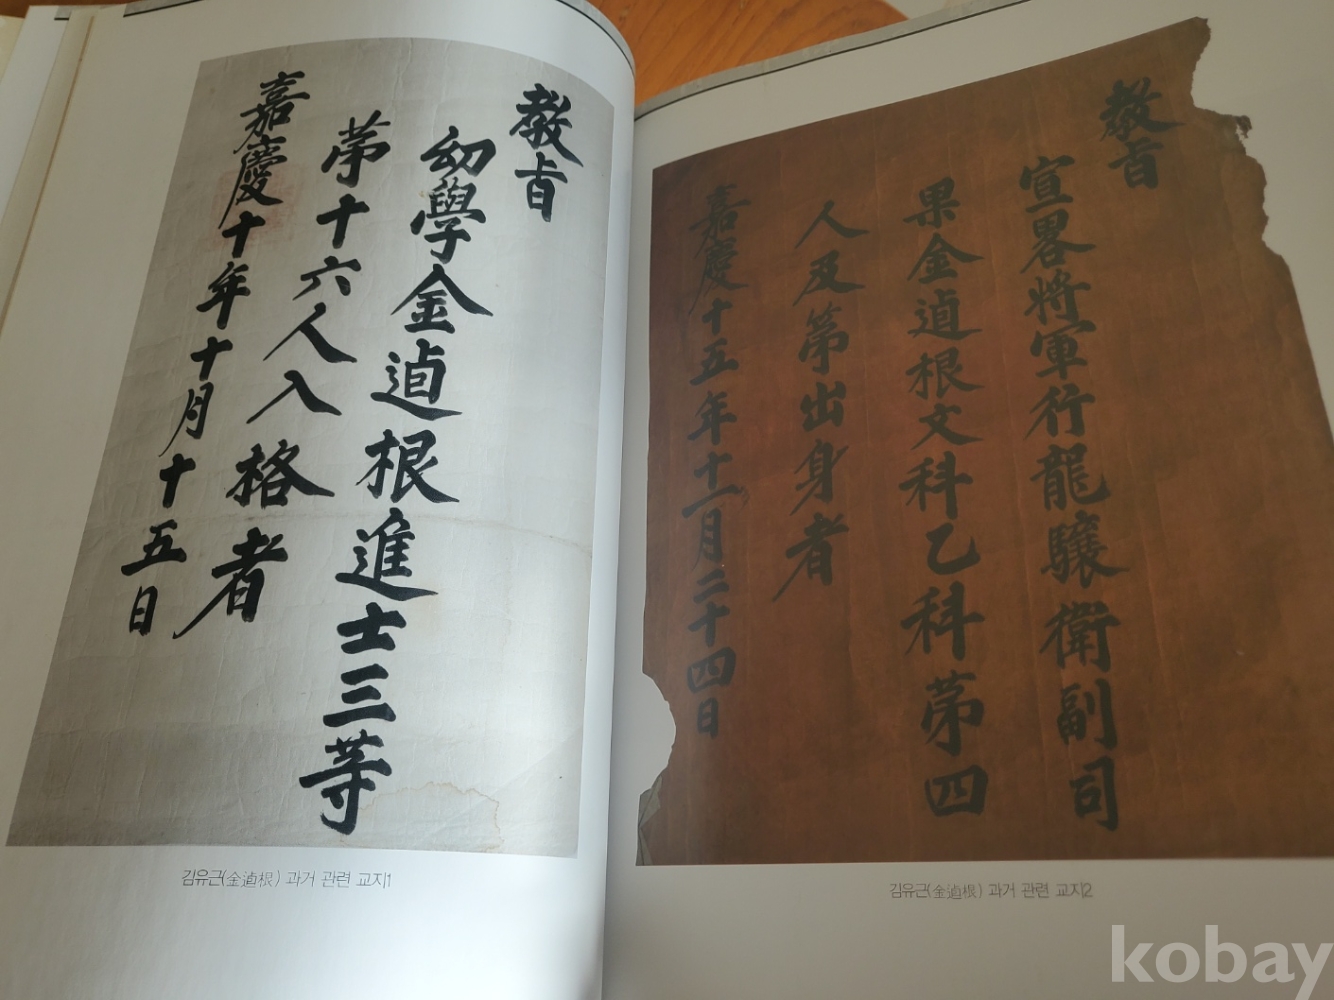 敎旨
幼學金逌根進士三等
苐十六人入格者
嘉慶十年十月十五日
김유근(金逌根) 과거 관련 교지1
敎旨
宣畧將軍行龍驤衛副司
果金逌根文科乙科苐四
人及第出身者
嘉慶十五年十一月二十四日
김유근(金逌根) 과거 관련 교지2
kobay